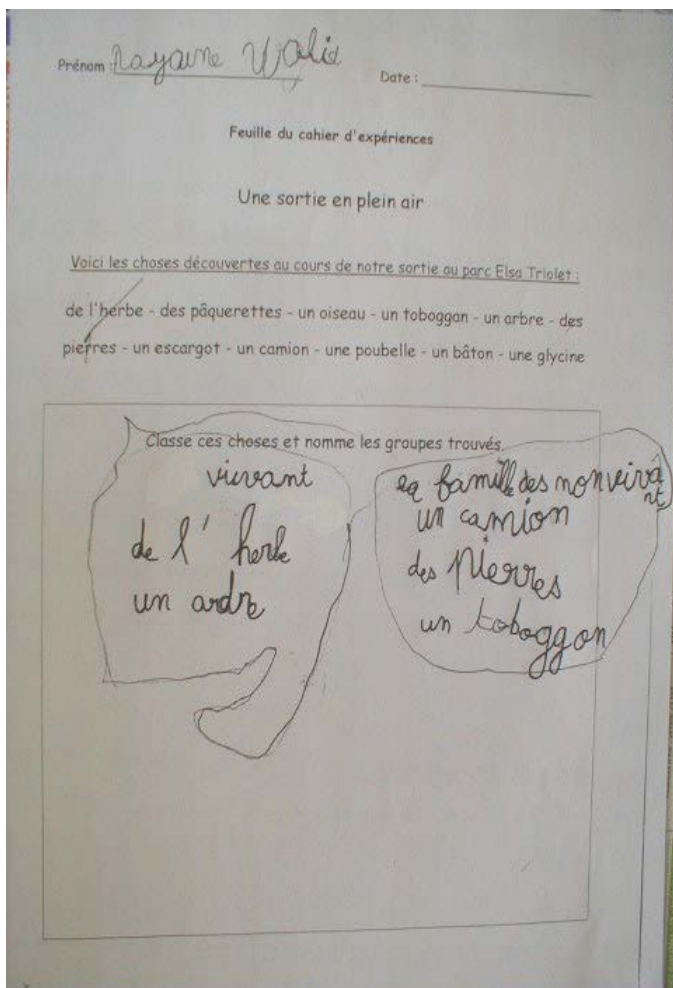 Prénom : Rayane Walid
Date :
Feuille du cahier d'expériences
Une sortie en plein air
Voici les choses découvertes au cours de notre sortie au parc Elsa Triolet :
de l'herbe - des pâquerettes - un oiseau - un toboggan - un arbre - des
pierres - un escargot - un camion - une poubelle - un bâton - une glycine
Classe ces choses et nomme les groupes trouvés.
vivant
de l' herbe
un ardre
famille des nonvivant
un camion
des pierres
un toboggon